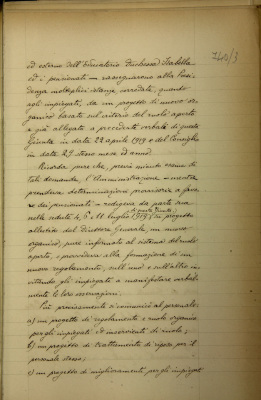 7400/3
ed esterni dell'Educatorio Duchessa Isabella
ed i pensionati - rassegnarono alla Presi
denza molteplici istanze corredate, quanto
agli impiegati, da un progetto di nuovo or
ganico basato sul criterio del ruolo aperto
e già allegato a precedente verbale di questa
Giunta in data 22 aprile 1919 e del Consiglio
in data 29 stesso mese ed anno.
Ricorda pure che, previo quindi esame di
tale domanda, l'Amministrazione - mentre
prendeva determinazioni provvisorie a favo
re dei pensionati - redigeva da parte sua
nelle sedute 4, 8 e 11 luglio 1919 su progetto
allestito dal Direttore Generale, un nuovo
organico, pure informato al sistema del ruolo
aperto, e provvedeva alla formazione di un
nuovo regolamento, sull'uno e sull'altro in
vitando gli impiegati a manifestare verbal
mente le loro osservazioni.
Ciò premesso si comunicò al personale:
a) un progetto di regolamento e ruolo organico
per gli impiegati ed inservienti di ruolo;
b) un progetto di trattamento di riposo per il
personale stesso;
c) un progetto di miglioramenti per gli impiegati